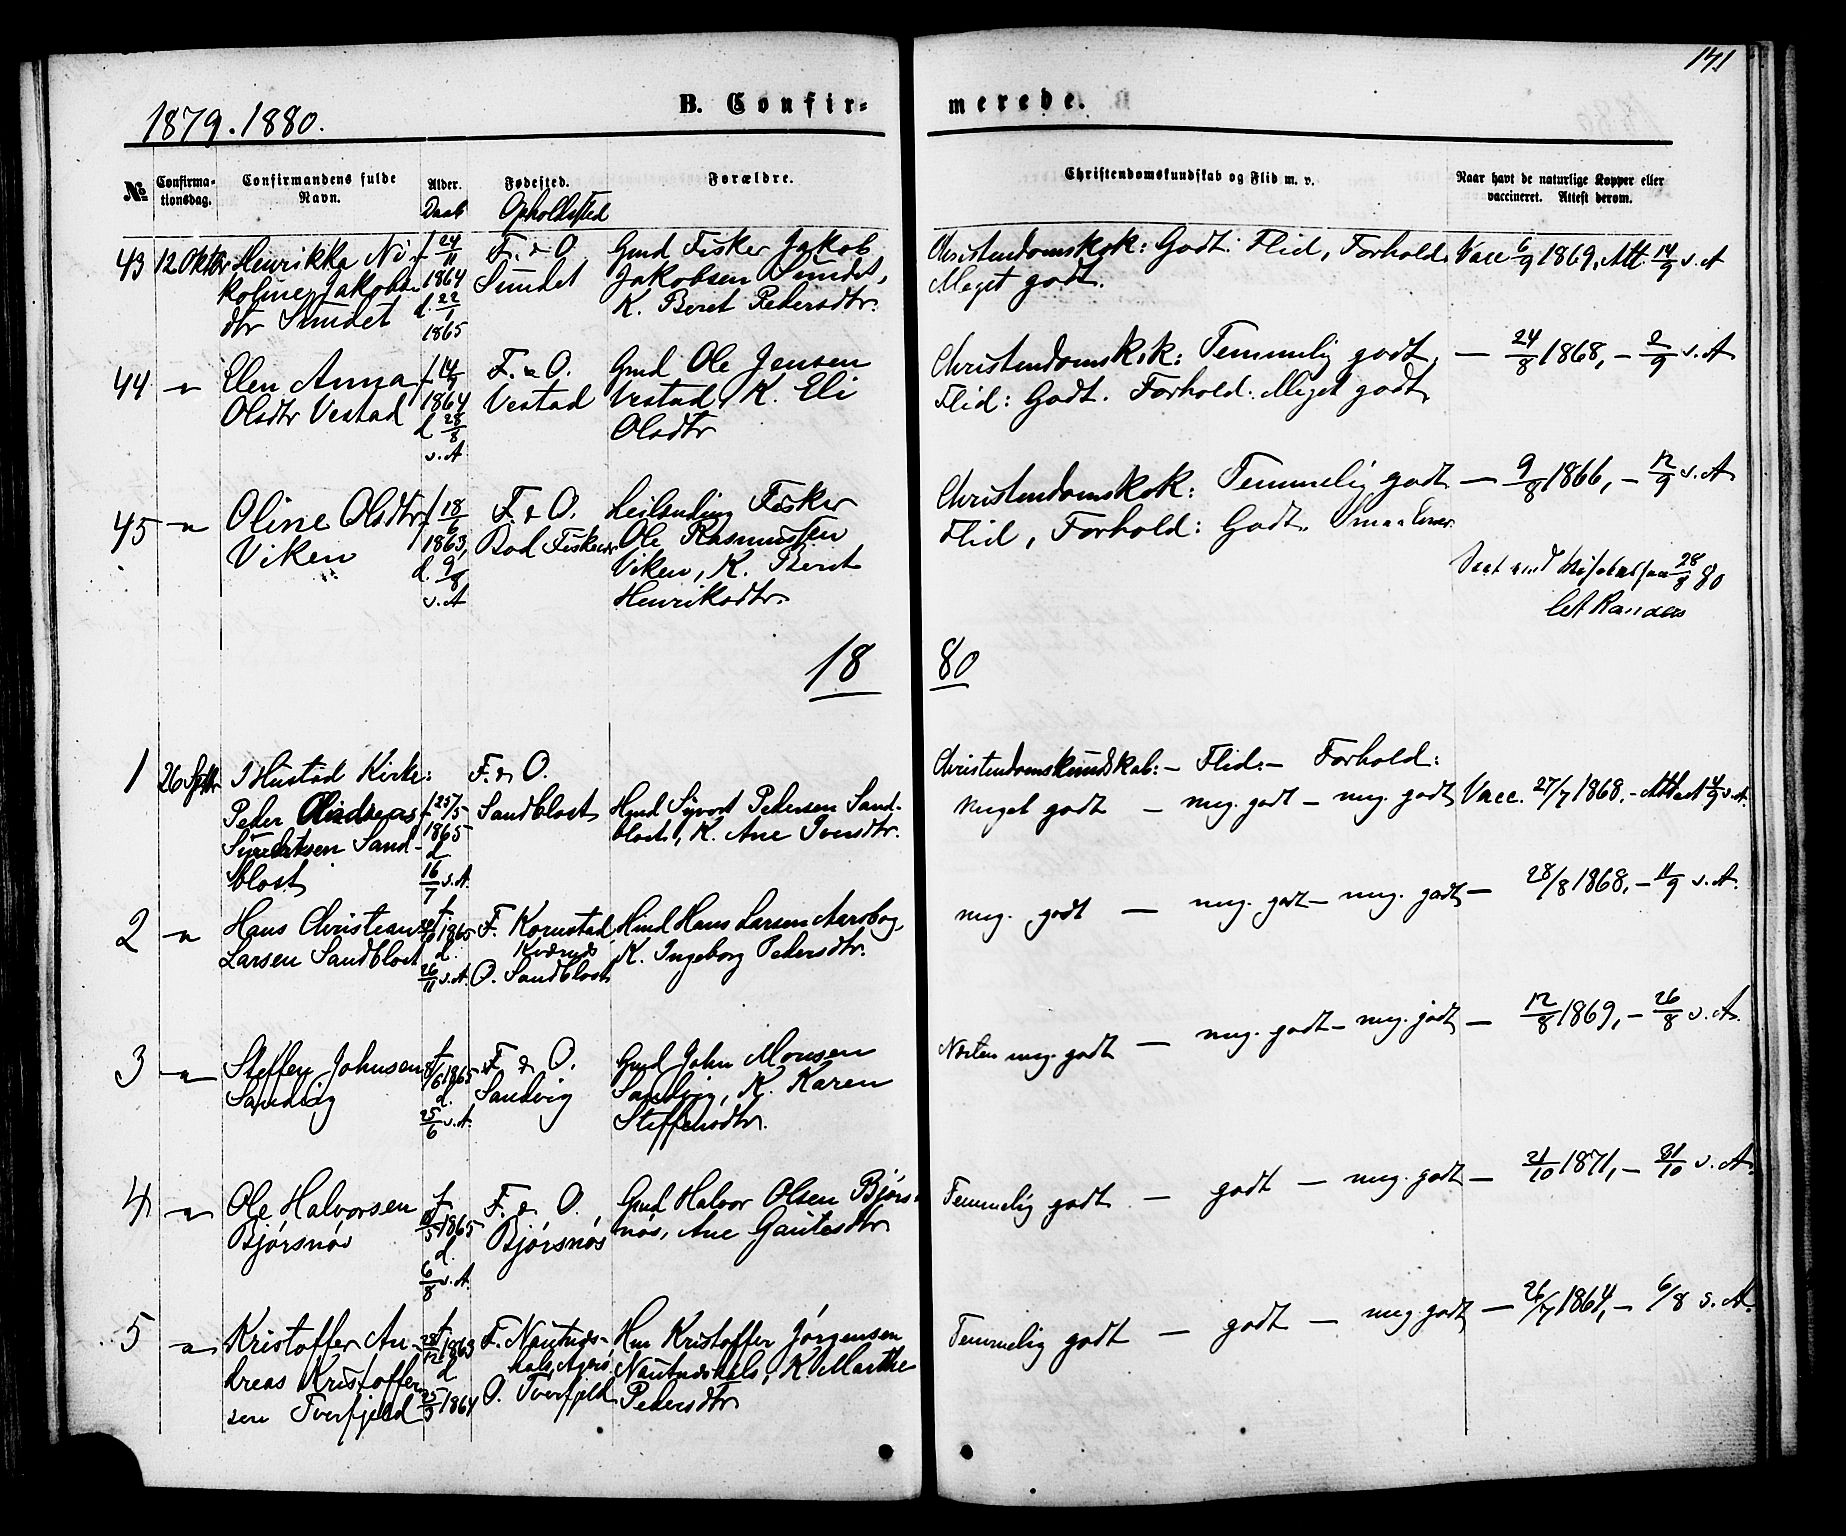 141
1879. 1880.
B. Confir- merede.
№
Confirma-
tionsdag.
Confirmandens fulde
Navn.
Alder.
Daab
Fødested.
Opholdssted
Forældre.
Christendomskundskab og Flid m. v.
Naar havt de naturlige Kopper eller
vaccineret. Attest derom.
43 12 Oktbr Henrikke Ni-
koline Jakobs-
dtr Sundet
f. 24/11
1864
d. 22/1
1865
F. & O.
Sundet
Gmd Fisker Jakob
Jakobsen Sundet,
K. Beret Pedersdtr.
Christendomsksk: Godt. Flid, Forhold.
Meget godt.
Vacc 6/9 1869, Att. 14/9 s. A
44 — Elen Anna
Olsdtr Vestad
f. 14/7
1864
d. 28/8
s. A
F. & O.
Vestad
Gmd Ole Jensen
Vestad, K. Eli
Olsdtr
Christendomsk.k: Temmelig godt,
Flid: Godt. Forhold: Meget godt,
— 24/8 1868, — 2/9 s. A
45 — Oline Olsdtr
Viken
f. 18/6
1863,
d. 9/8
s. A
F. & O.
Bod
Leilending Fisker
Ole Rasmussen
Viken, K. Berit
Henriksdtr.
Christendomsk.k: Temmelig godt
Flid, Forhold: Godt.
— 9/8 1866, — 12/9 s. A
28/8 80
18 80
1 26 Septbr I Hustad Kirke:
Peder Andreas
Sivertsen Sand-
blost
f. 25/5
1865
d.
16/7 s. A.
F. & O.
Sandblost
Gmd Sivert Pedersen Sand-
blost, K. Ane Iversdtr.
Christendomskundskab: — Flid: — Forhold:
Meget godt — meg. godt — meg. godt, Vacc. 27/7 1868, — Att. 4/9 s. A.
2 — Hans Christian
Larsen Sandblost
1865
d.
26/11 s. A.
F. Kornstad
Kværnæs
O. Sandblost
Hans Larsen
K. Ingeborg Pedersdtr.
meg. godt — meg. godt — meg. godt — 28/8 1868, — 11/9 s. A.
3 — Steffen Johnsen
Sandvig
f.
8/6 1865
d.
25/6 s. A.
F. & O.
Sandvig
Gmd John Monsen
Sandvig, K. Karen
Steffensdtr.
Næsten meg. godt — meg. godt — meg. godt — 12/8 1869, — 26/8 s. A.
4 — Ole Halvorsen
Bjørsnøs
f.
1865
d.
6/8 s. A.
F. & O.
Bjørsnøs
Gmd Halvor Olsen Bjørs-
nøs, Ane Gautesdtr
Temmelig godt — godt — meg. godt — 21/10 1871, — 31/10 s. A.
5 — Kristoffer An-
dreas Kristoffer-
sen Tverfjeld
f.
28/12 1863
d.
25/3 1864
F. Nautnæs-
hals,
O. Tverfjeld
Hm Kristoffer Jørgensen
Nautneshals, K. Marthe
Pedersdtr
Temmelig godt — godt — meg. godt — 26/7 1864, — 6/8 s. A.